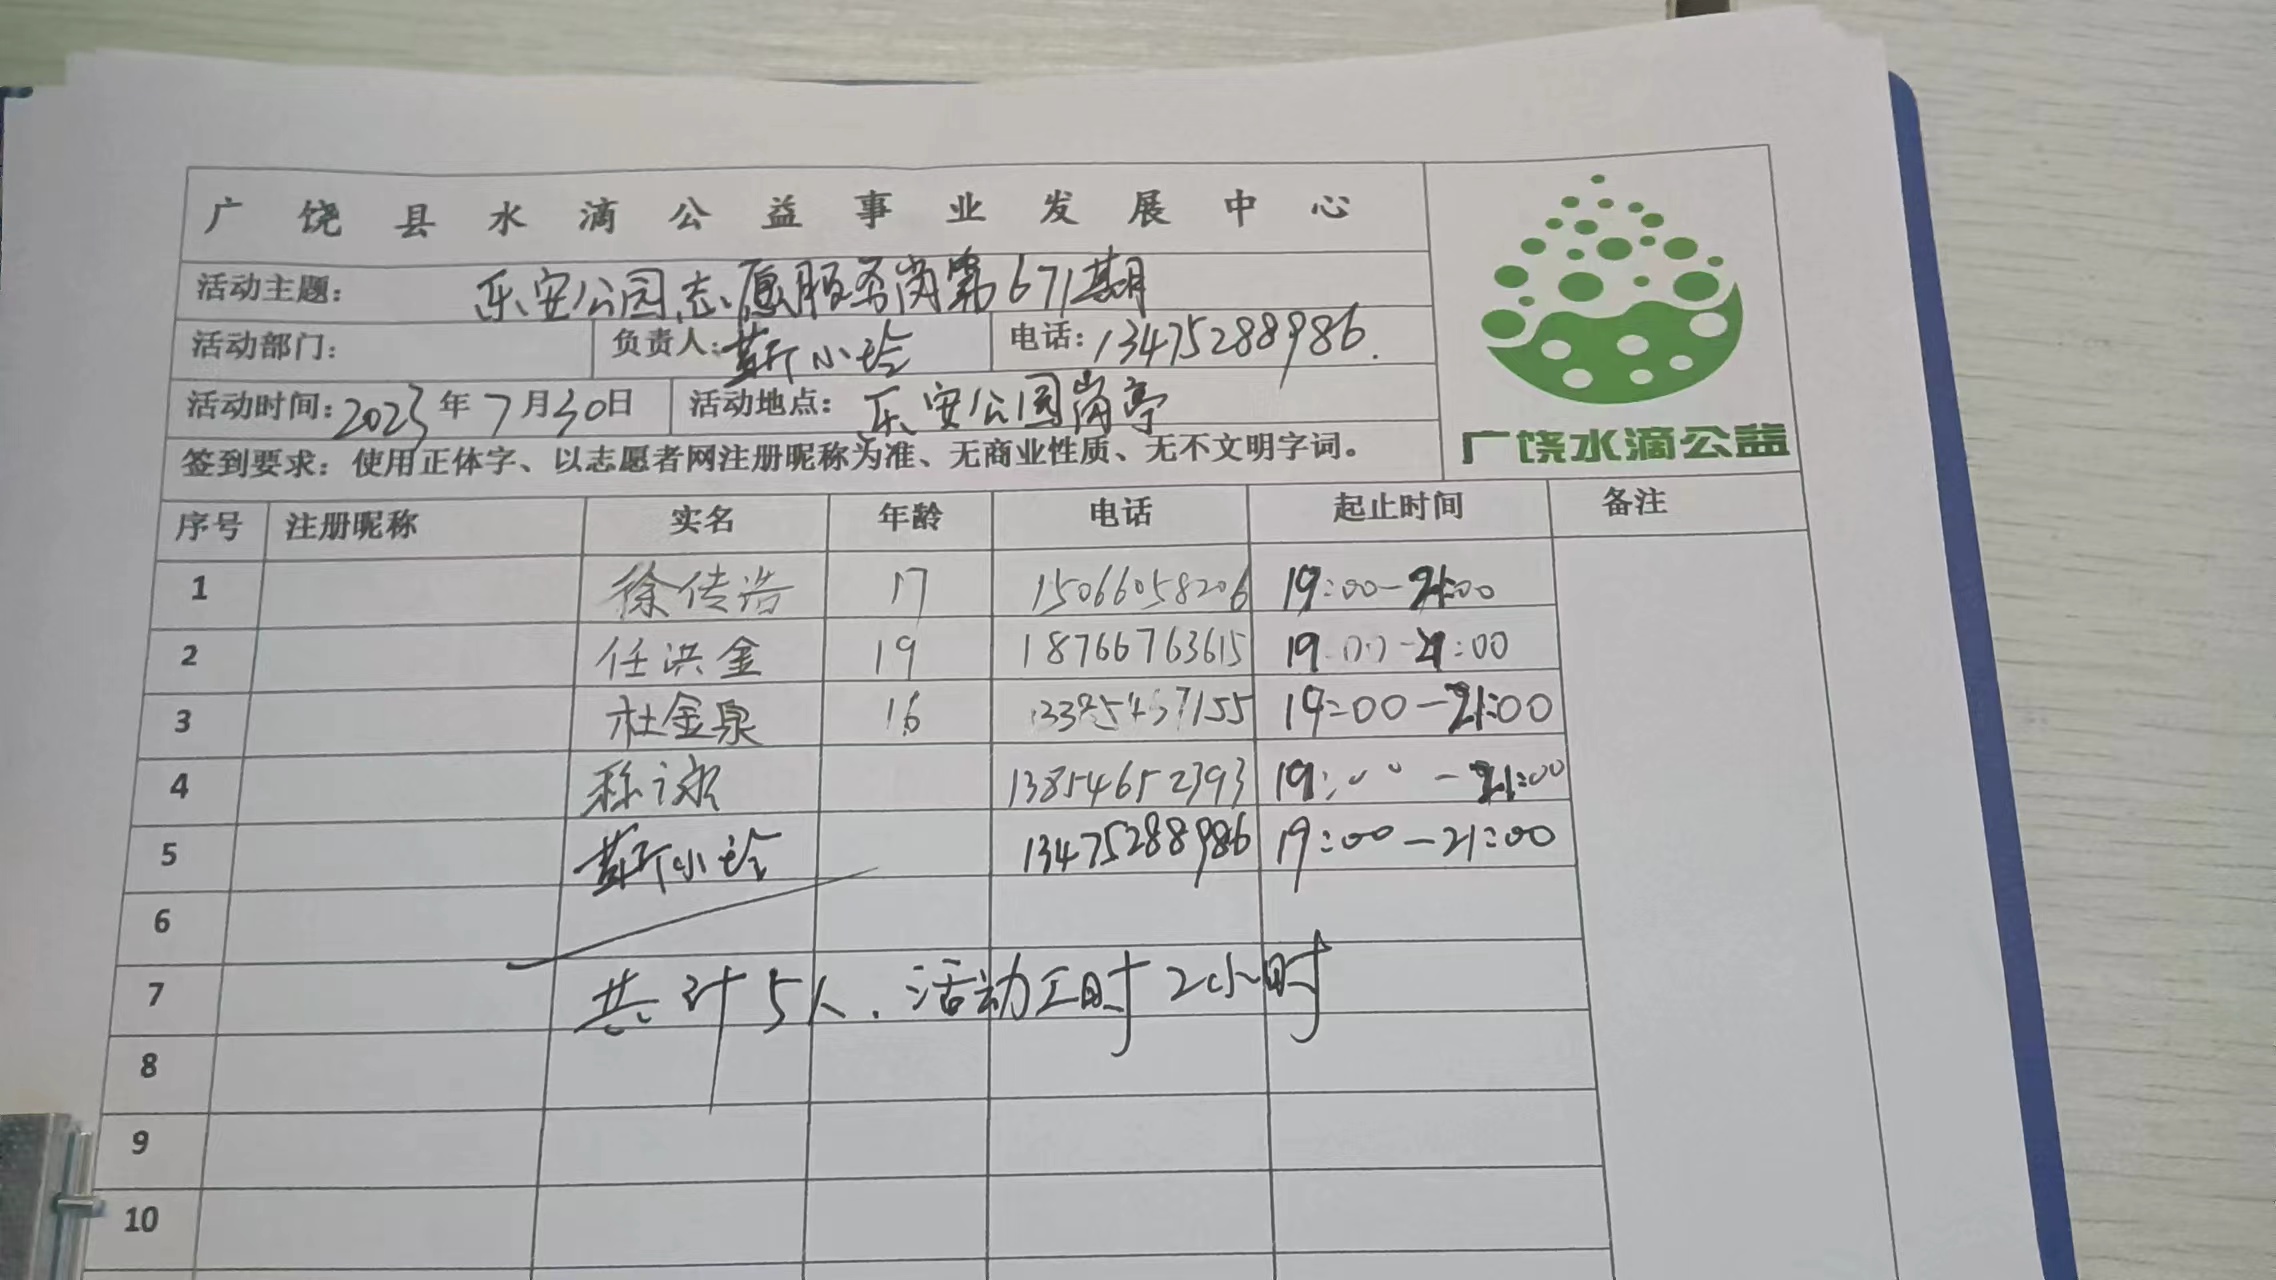 广饶县水滴公益事业发展中心
活动主题: 乐安公园志愿服务岗第671期
活动部门: 负责人: 靳小玲 电话: 13475288986.
活动时间: 2023年7月30日 活动地点: 乐安公园岗亭
签到要求: 使用正体字、以志愿者网注册昵称为准、无商业性质、无不文明字词。
广饶水滴公益
序号 注册昵称 实名 年龄 电话 起止时间 备注
1 徐传浩 17 15066058206 19:00-21:00
2 任洪金 19 18766763615 19:00-21:00
3 杜金泉 16 19:00-21:00
4 13854652393 19:00-21:00
5 靳小玲 13475288986 19:00-21:00
6
7 共计5人.活动工时2小时
8
9
10